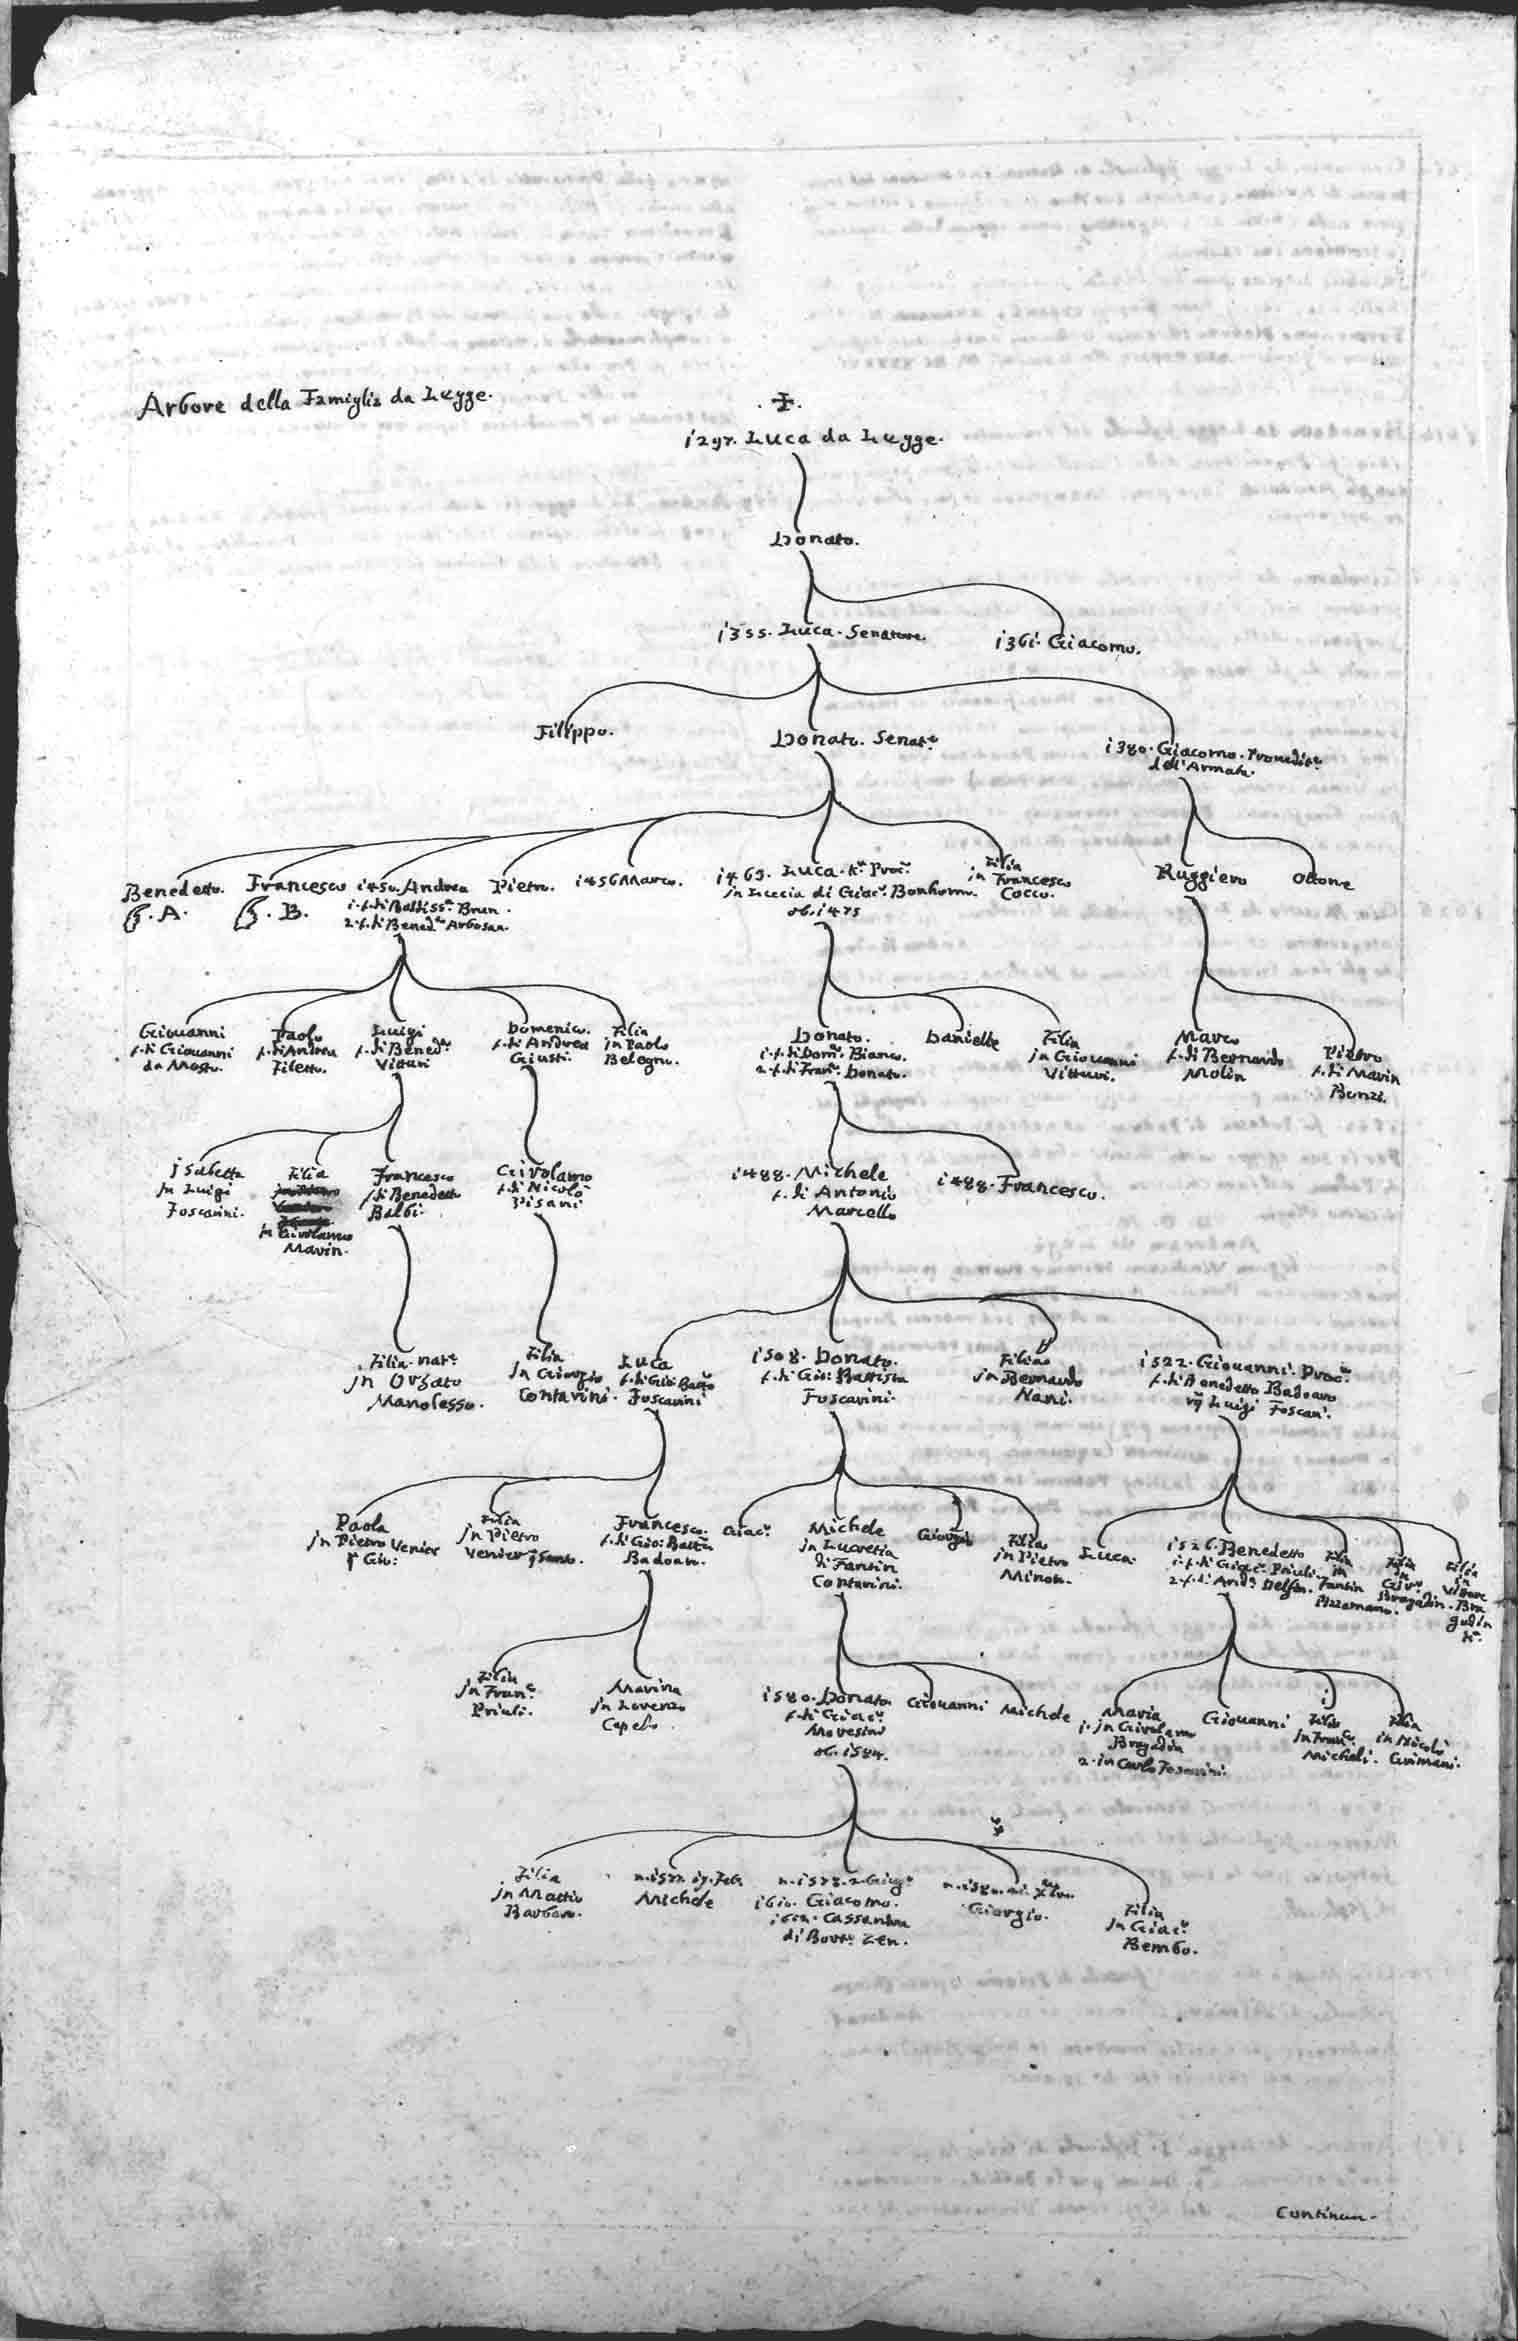 Arbore della Famiglia da Legge.
1297. Luca da Legge.
Donato.
1355. Luca. Senatore.
1361. Giacomo.
Filippo.
Donato. Senat.e
1380. Giacomo. Proueditr.e
dell'Armata.
Benedetto.
A.
Francesco
B.
1450. Andrea
1. f. di Battiss.a Brun.
2. f. di Bened.o Arbosan.
Pietro.
1456 Marco.
1463. Luca. K.r Proc.r
in Lucia di Giac.o Bonhomo.
ob. 1475
Filia
in Francesco
Cocco.
Ruggiero
Ottone
Giouanni
f. di Giouanni
da Mosto.
Paolo
f. di Andrea
Filetto.
Luigi
f. di Bened.o
Vitturi
Domenico.
f. di Andrea
Giusti.
Filia
in Paolo
Belegno.
Donato.
1. f. di Dom.o Bianco.
2. f. di Fran.o Donato.
Danielle
Filia
in Giouanni
Vitturi.
Marco
f. di Bernardo
Molin
Pietro
f. di Marin
Bonzi.
Isabetta
in Luigi
Foscarini.
Filia
in Girolamo
Marin.
Francesco
f. di Benedetto
Balbi.
Girolamo
f. di Nicolò
Pisani
1488. Michele
f. di Antonio
Marcello
1488. Francesco.
Filia nat.e
in Orsato
Manolesso.
Filia
in Giorgio
Contarini.
Luca
f. di Gio: Batta
Foscarini
1508. Donato.
f. di Gio: Battista
Foscarini.
Filia
in Bernardo
Nani.
1522. Giouanni. Proc.r
f. di Benedetto Badoaro
Luigi Foscari.
Paola
in Pietro Venier
Gio:
Filia
in Pietro
Venier
Francesco.
f. di Gio: Batta
Badoaro.
Giac.o
Michele
in Lucretia
di Fantin
Contarini.
Giorgio
Filia
in Pietro
Minoto.
Luca.
1526. Benedetto
1. f. di Giac.o Priuli.
2. f. di And.a Delfin.
Filia
in
Fantin
Pizzamano.
Filia
in
Gir.o
Bragadin.
Filia
in
Vettore
Bra
gadin
K.r
Filia
in Fran.o
Priuli.
Marina
in Lorenzo
Capelo.
1580. Donato.
f. di Giac.o
Moresini
ob. 1584.
Giouanni
Michele
Maria
1. in Girolamo
Bragadin
2. in Carlo Foscarini.
Giouanni
Filia
in Fran.o
Micheli.
Filia
in Nicolò
Grimani.
Filia
in Mattio
Barbaro.
n. 1577. 17. Feb.
Michele
n. 1578. 2. Giug.o
1610. Giacomo.
Cassandra
di Bort.o Zen.
Giorgio.
Filia
in Giac.o
Bembo.
Continua.